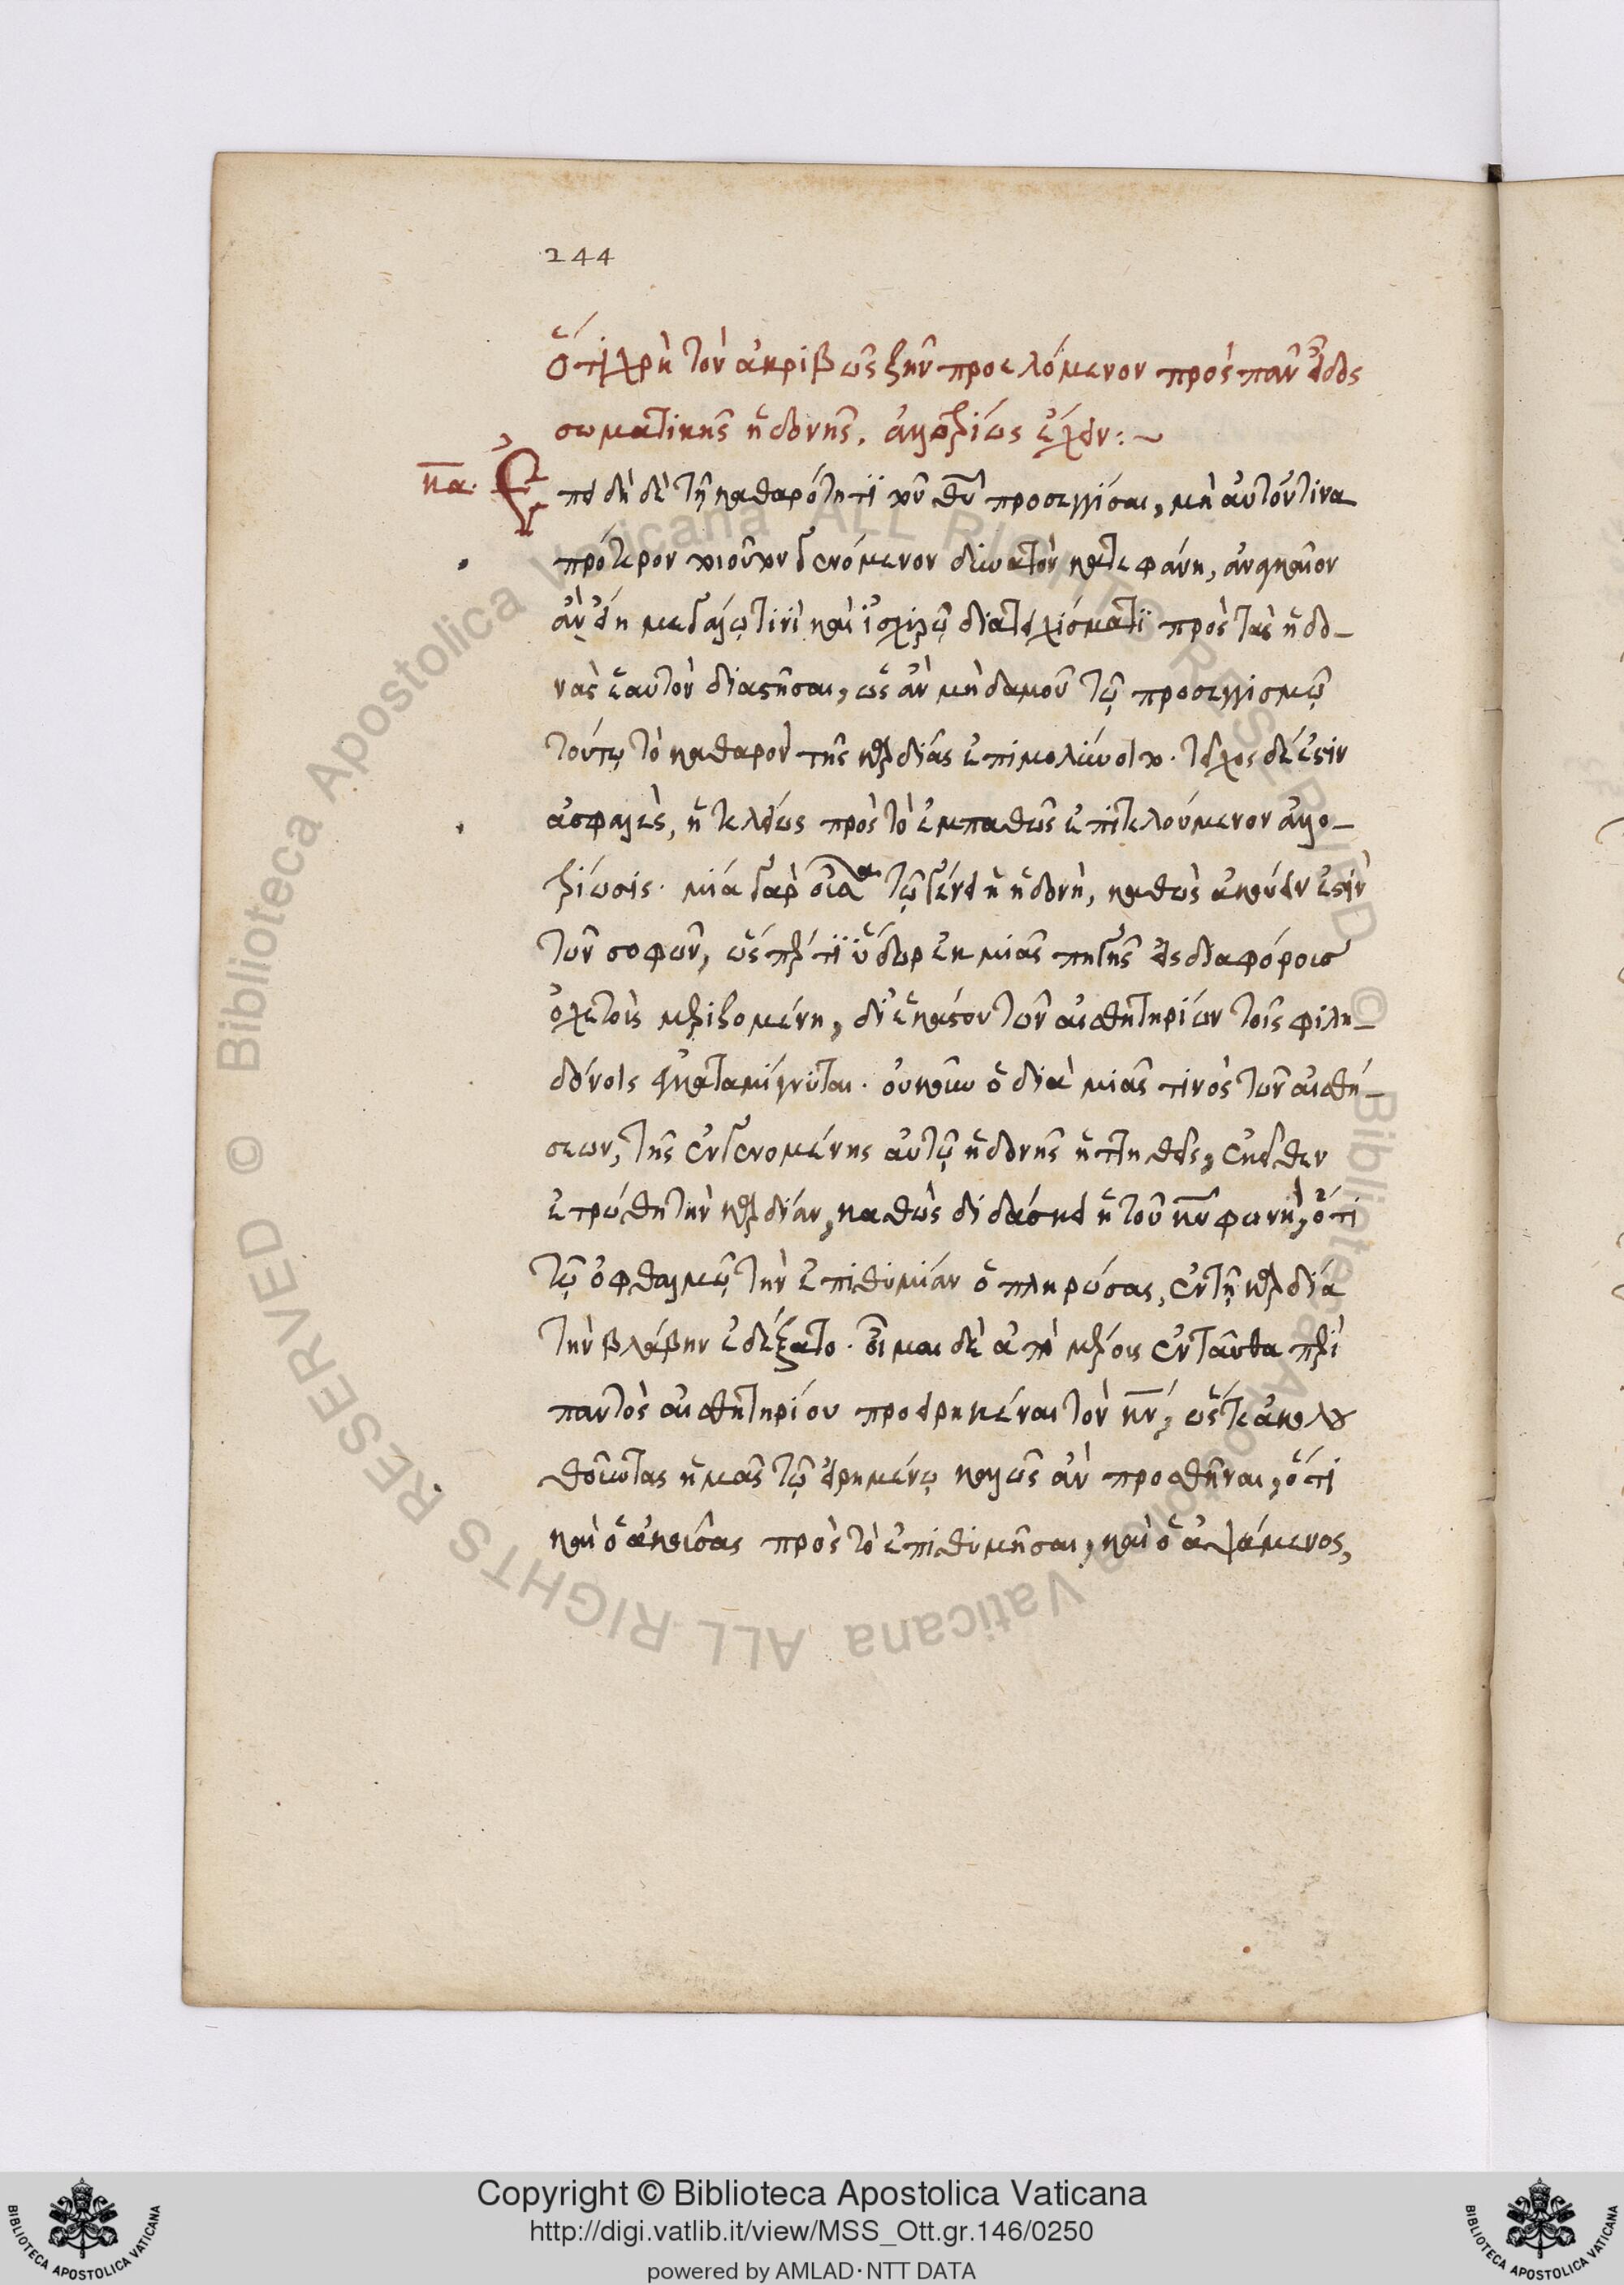 244
Ὅτι χρὴ τὸν ἀκριβῶς ζῆν προελόμενον πρὸς πᾶν εἶδος
σωματικῆς ἡδονῆς, ἀλλοτρίως ἔχειν:~
κα. Ἐπειδὴ δὲ τῇ καθαρότητι τοῦ θῦ προσεγγίσαι, μὴ αὐτόν τινα
πρότερον τοιοῦτον γενόμενον δυνατὸν κατεφάνη, ἀναγκαῖον
ἂν εἴη μεγάλῳ τινὶ καὶ ἰσχυρῷ διατειχίσματι πρὸς τὰς ἡδο-
νὰς ἑαυτὸν διαστῆσαι, ὡς ἂν μηδαμοῦ τῷ προσεγγισμῷ
τούτῳ τὸ καθαρὸν τῆς καρδίας ἐπιμολύνοιτο. τεῖχος δέ ἐστιν
ἀσφαλὲς, ἡ τελείως πρὸς τὸ ἐμπαθῶς ἐπιτελούμενον ἀλλο-
τρίωσις. μία γὰρ οὖσα τῷ γένει ἡ ἡδονὴ, καθὼς ἀκούειν ἐστὶν
τῶν σοφῶν, ὥσπερ τι ὕδωρ ἐκ μιᾶς πηγῆς εἰς διαφόρους
ὀχετοὺς μεριζομένη, δι' ἑκάστου τῶν αἰσθητηρίων τοῖς φιλη-
δόνοις ἐγκαταμίγνυται. οὐκοῦν ὁ διὰ μιᾶς τινὸς τῶν αἰσθή-
σεων, τῆς ἐγγενομένης αὐτῷ ἡδονῆς ἡττηθεὶς, ἐκεῖθεν
ἐτρώθη τὴν καρδίαν, καθὼς διδάσκει ἡ τοῦ κῦ φωνὴ, ὅτι
τῷ ὀφθαλμῷ τὴν ἐπιθυμίαν ὁ πληρώσας, ἐν τῇ καρδίᾳ
τὴν βλάβην ἐδέξατο. οἶμαι δὲ ἀπὸ μέρους ἐνταῦθα περὶ
παντὸς αἰσθητηρίου προειρηκέναι τὸν κν, ὥστε ἀκολου
θοῦντας ἡμᾶς τῷ εἰρημένῳ καλῶς ἂν προσθῆναι, ὅτι
καὶ ὁ ἀκούσας πρὸς τὸ ἐπιθυμῆσαι, καὶ ὁ ἁψάμενος,
Copyright © Biblioteca Apostolica Vaticana
http://digi.vatlib.it/view/MSS_Ott.gr.146/0250
powered by AMLAD·NTT DATA